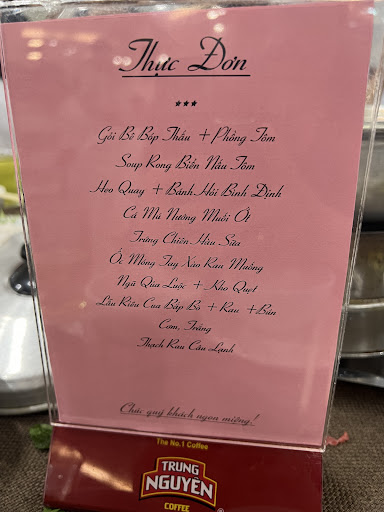 Thực Đơn
***
Gỏi Bê Bóp Thấu + Phồng Tôm
Soup Rong Biển Nấu Tôm
Heo Quay + Bánh Hỏi Bình Định
Cá Mú Nướng Muối Ớt
Trứng Chiên Hàu Sữa
Ốc Móng Tay Xào Rau Muống
Ngũ Quả Luộc + Kho Quẹt
Lẩu Riêu Cua Bắp Bò + Rau + Bún
Cơm, Trắng
Thạch Rau Câu Lạnh
Chúc quý khách ngon miệng!
The No.1 Coffee
TRUNG
NGUYÊN
COFFEE
®